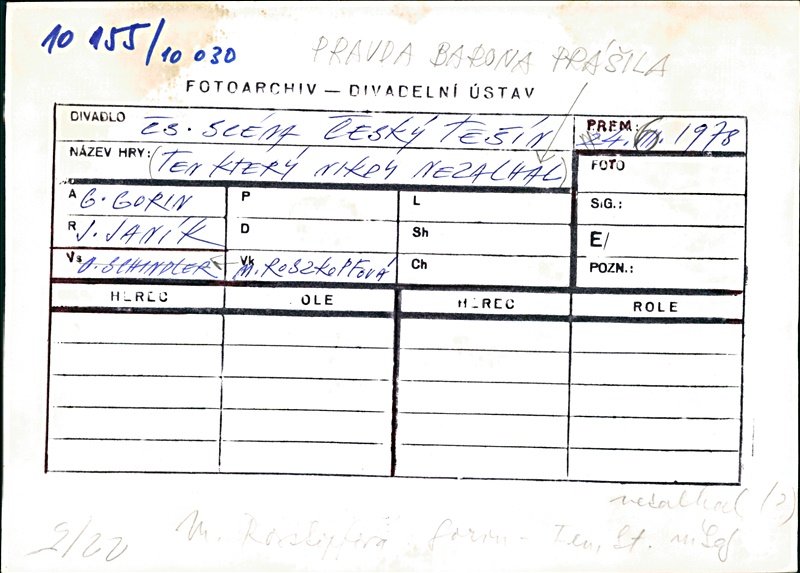 10 155/10 030
PRAVDA BARONA PRÁŠILA
FOTOARCHIV — DIVADELNÍ ÚSTAV
DIVADLO ČS. SCÉNA ČESKÝ TĚŠÍN
PREM: 24. 1978
NÁZEV HRY: (TEN KTERÝ NIKDY NEZALHAL)
FOTO
A G. GORIN
P
L
SIG.:
R J. JANÍK
D
Sh
E/
Vs O. SCHINDLER
Vk M. ROSZKOPFOVÁ
Ch
POZN.:
HEREC
OLE
HEREC
ROLE
nezalhal (?)
2/22 M. Gorin - Ten, St.